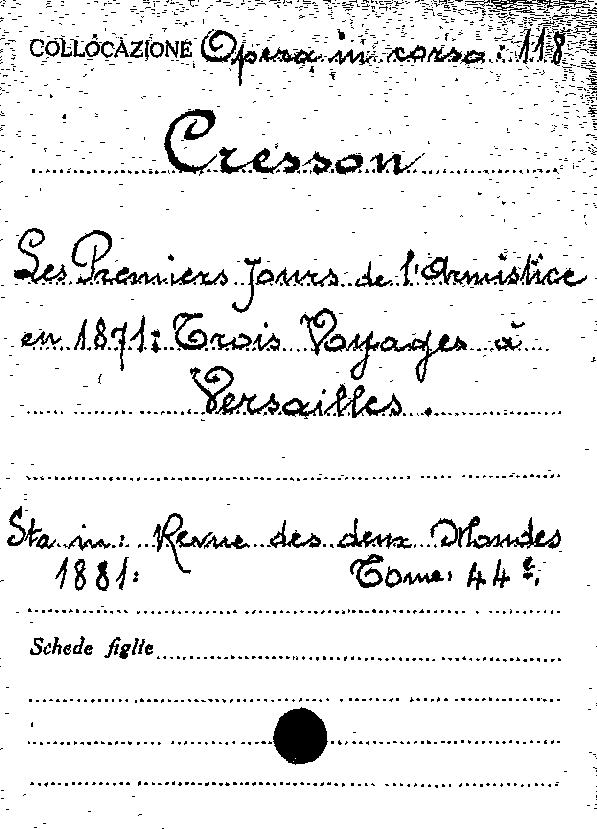 COLLOCAZIONE Opera in corso: 118
Cresson
Les Premiers Jours de l'Armistice
en 1871: Trois Voyages à
Versailles.
Sta in: Revue des deux Mondes
1881: Tome: 44e.
Schede figlie